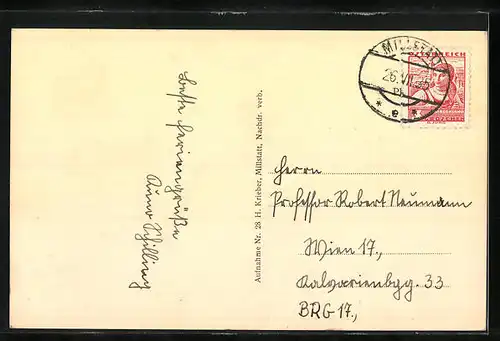 Beste Feriengrüße
Kuno Schilling
Aufnahme Nr. 28 H. Krieber, Millstatt, Nachdr. verb.
MILLSTATT
26.VII.35
* e *
ÖSTERREICH
Herrn
Professor Robert Neumann
Wien 17.,
Kalvarienbg. 33
BRG 17.,